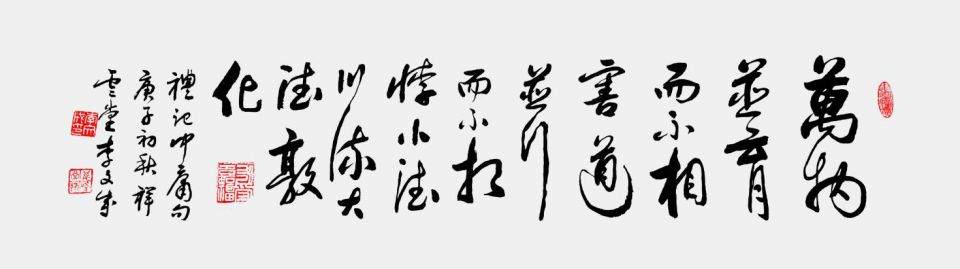 萬物
並育
而不相
害道
並行
而不相
悖小德
川流大
德敦
化
禮記中庸句
庚子初秋祥
雲堂李文成